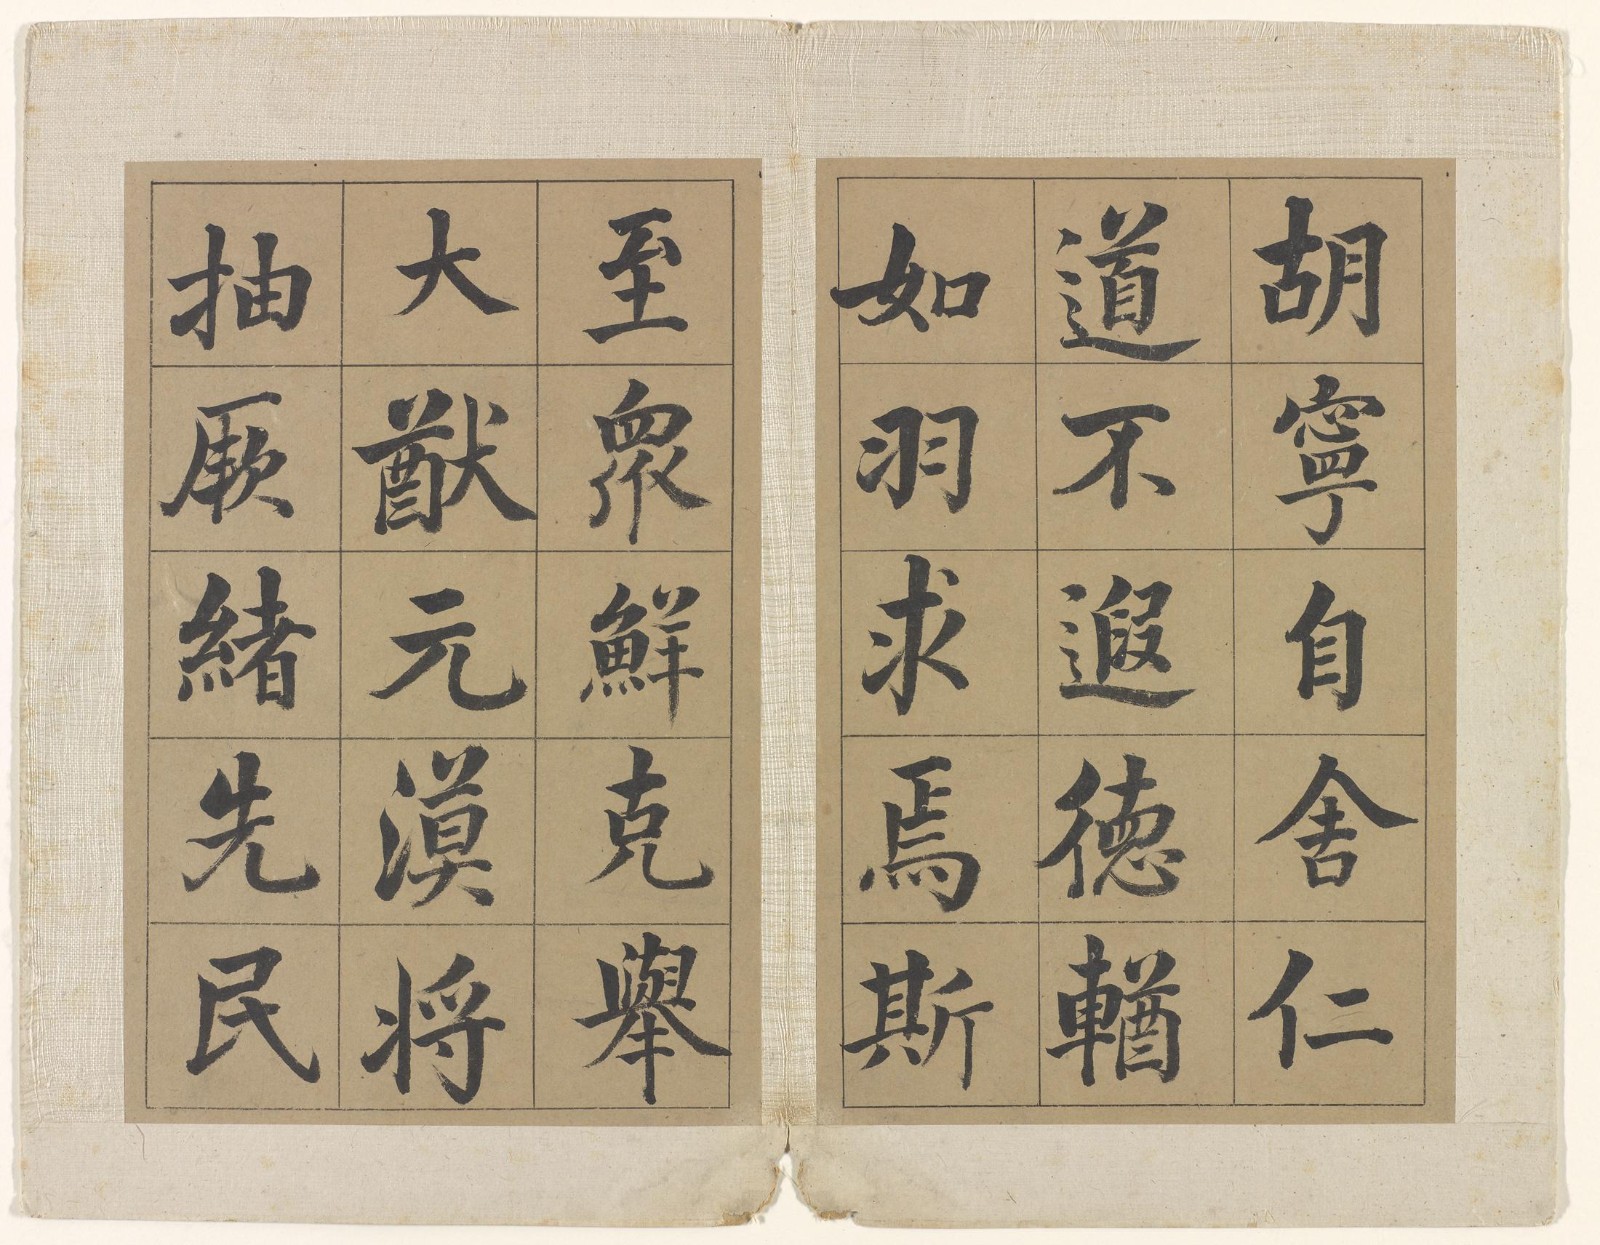 胡寧自舍仁
道不遐德輶
如羽求焉斯
至衆鮮克舉
大猷元漠將
抽厥緒先民